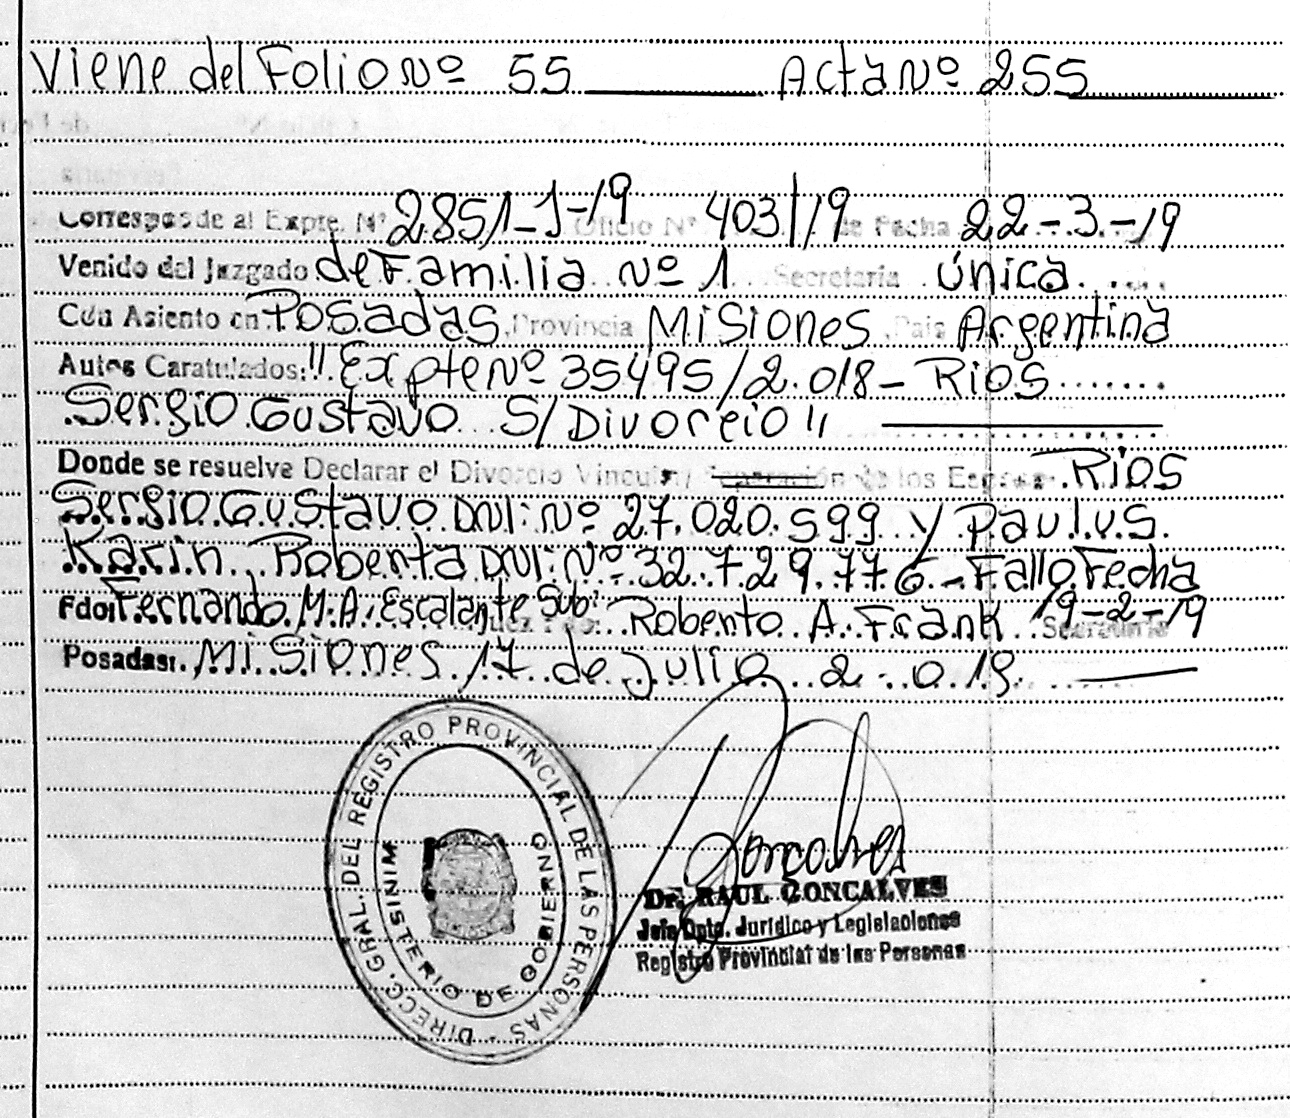 Viene del Folio Nº 55 Acta Nº 255
Corresponde al Expte. Nº 2851-J-19 Oficio Nº 403/19 de Fecha 22-3-19
Venido del Juzgado de Familia Nº 1 Secretaría única
Con Asiento en Posadas, Provincia Misiones, País Argentina
Autos Caratulados: "Expte Nº 35495/2.018 - Rios
Sergio Gustavo S/ Divorcio"
Donde se resuelve Declarar el Divorcio Vincular / Separación de los Esposos RIOS
Sergio Gustavo DNI: Nº 27.020.599 y Paulus
Karin Roberta DNI: Nº 32.729.776 - Fallo Fecha
Fdo: Fernando M. A. Escalante Juez Fdo: Sub: Roberto A. Frank Secretario 19-2-19
Posadas: Misiones, 17 de Julio 2.019
DIRECC. GRAL. DEL REGISTRO PROVINCIAL DE LAS PERSONAS
MINISTERIO DE GOBIERNO
Goncalves
Dr. RAUL GONCALVES
Jefe Dpto. Jurídico y Legislaciones
Registro Provincial de las Personas